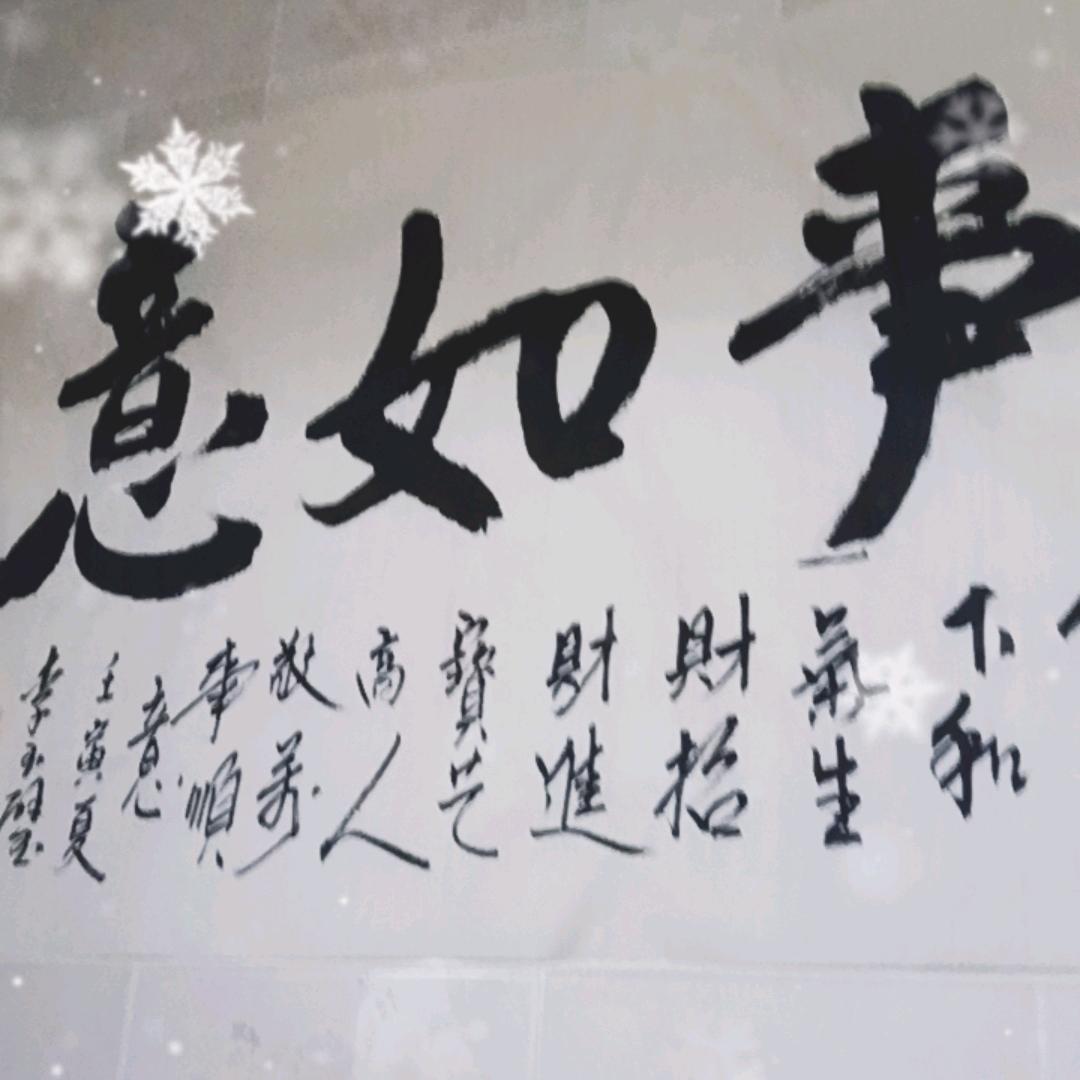 事如意
下和
氣生
財招
財進
寶艺
高人
敬萬
事順
意
壬寅夏
李玉璧